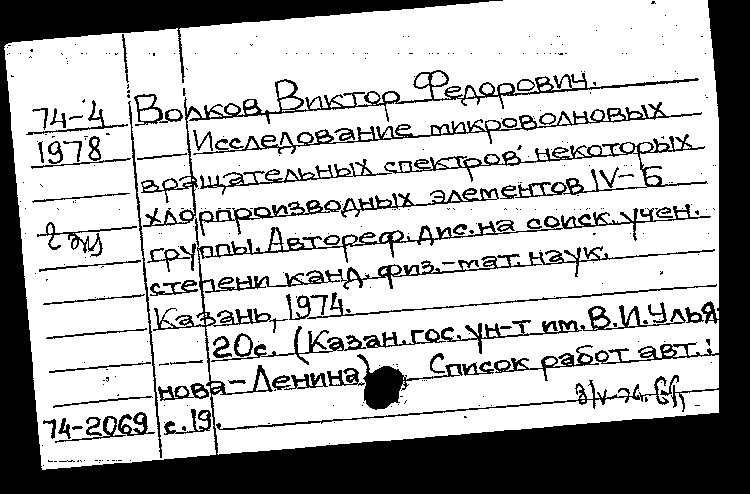 74-4 Волков, Виктор Федорович.
1978 Исследование микроволновых
вращательных спектров некоторых
хлорпроизводных элементов IV-Б
2 экз группы. Автореф. дис. на соиск. учен.
степени канд. физ.-мат. наук.
Казань, 1974.
20с. (Казан. гос. ун-т им. В.И. Улья
нова-Ленина) Список работ авт.:
74-2069 с. 19.